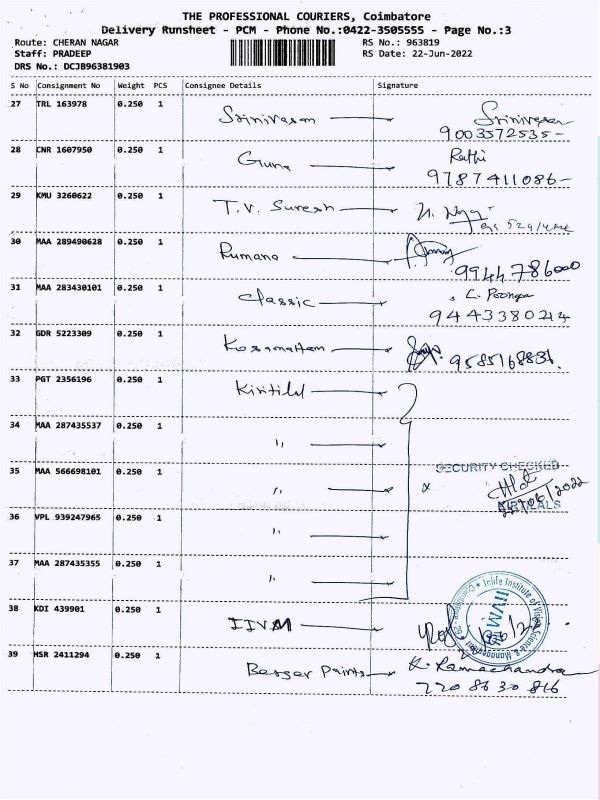 THE PROFESSIONAL COURIERS, Coimbatore
Delivery Runsheet - PCM - Phone No.:0422-3505555 - Page No.:3
Route: CHERAN NAGAR RS No.: 963819
Staff: PRADEEP RS Date: 22-Jun-2022
DRS No.: DCJB96381903
S No Consignment No Weight PCS Consignee Details Signature
27 TRL 163978 0.250 1 Srinivasan Srinivasan
9003572535-
28 CNR 1607950 0.250 1 Guna Rathi
9787411086-
29 KMU 3260622 0.250 1 T.V. Suresh
30 MAA 289490628 0.250 1 Rumana
9944786000
31 MAA 283430101 0.250 1 Classic
9443380244
32 GDR 5223309 0.250 1 Kosamattam
33 PGT 2356196 0.250 1 Kirtilal
34 MAA 287435537 0.250 1 "
35 MAA 566698101 0.250 1 " SECURITY CHECKED
22/06/2022
36 VPL 939247965 0.250 1 "
37 MAA 287435355 0.250 1 "
38 KDI 439901 0.250 1 IIVM
Inlife Institute of Vision Science & Management * Coimbatore - 29 *
IIVM
39 HSR 2411294 0.250 1 Berger Paints K. Ramachandra
220 8630 816